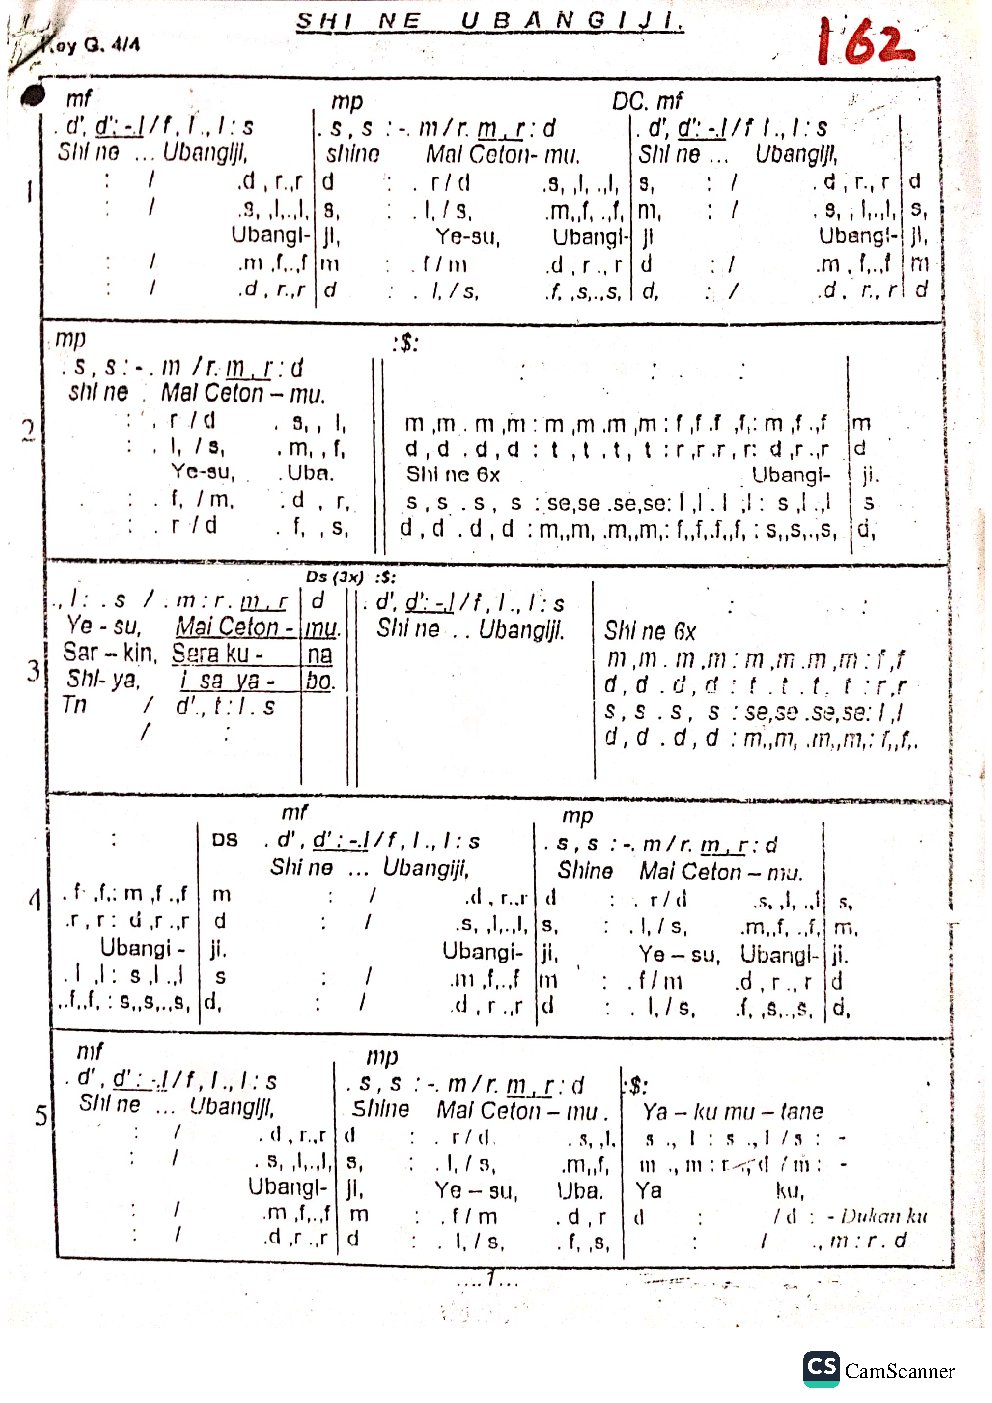 SHI NE UBANGIJI.
Key G. 4/4
162
mf mp DC. mf
. d', d': -.l / f , l ., l : s . s , s : -. m / r. m , r : d . d', d': -.l / f l ., l : s
Shi ne ... Ubangiji, shine Mai Ceton- mu. Shi ne ... Ubangiji,
1
: / .d , r.,r d : . r / d .s, ,l, .,l, s, : / . d , r., r d
: / .s, ,l,.,l, s, : . l, / s, .m,,f, .,f, m, : / . s, , l,.,l, s,
Ubangi- ji, Ye-su, Ubangi- ji Ubangi- ji,
: / .m ,f.,f m : . f / m .d , r ., r d : / .m , f.,f m
: / .d , r.,r d : . l, / s, .f, ,s,.,s, d, : / .d , r., r d
mp :$:
. s , s : -. m / r. m , r : d : . :
shi ne . Mai Ceton – mu.
2
: . r / d . s, , l, m ,m . m ,m : m ,m .m ,m : f ,f .f ,f,: m ,f .,f m
: . l, / s, . m, , f, d , d . d , d : t , t . t , t : r , r . r , r: d , r .,r d
Ye-su, . Uba. Shi ne 6x Ubangi- ji.
: . f, / m, . d , r, s , s . s , s : se,se .se,se: l ,l . l ,l : s ,l .,l s
: . r / d . f, , s, d , d . d , d : m,,m, .m,,m,: f,,f,.f,,f, : s,,s,.,s, d,
Ds (3x) :$:
., l : . s / . m : r . m , r d . d', d': -.l / f , l ., l : s : :
Ye - su, Mai Ceton - mu. Shi ne . . Ubangiji. Shi ne 6x
Sar – kin, Sara ku - na m ,m . m ,m : m ,m .m ,m : f ,f
3
Shi- ya, i sa ya - bo. d , d . d , d : t . t . t , t : r , r
Tn / d'., t : l . s s , s . s , s : se,se .se,se: l ,l
/ : d , d . d , d : m,,m, .m,,m,: f,,f,.
mf mp
: DS . d', d' : -.l / f , l ., l : s . s , s : -. m / r. m , r : d
Shi ne ... Ubangiji, Shine Mai Ceton – mu.
4
. f ,f,: m ,f .,f m : / .d , r.,r d : . r / d .s, ,l, .,l s,
.r , r : d ,r .,r d : / .s, ,l,.,l, s, : . l, / s, .m,,f, .,f, m,
Ubangi - ji. Ubangi- ji, Ye – su, Ubangi- ji.
. l ,l : s ,l .,l s : / .m ,f.,f m : . f / m .d , r ., r d
.,f,,f, : s,,s,.,s, d, : / .d , r .,r d : . l, / s, .f, ,s,.,s, d,
mf mp
. d', d' : -.l / f , l ., l : s . s , s : -. m / r. m , r : d :$:
5
Shi ne ... Ubangiji, Shine Mai Ceton – mu . Ya – ku mu – tane
: / . d , r.,r d : . r / d . . s, ,l, s ., l : s ., l / s : -
: / . s, ,l,.,l, s, : . l, / s, .m,,f, m ., m : r ., d / m : -
Ubangi- ji, Ye – su, Uba. Ya ku,
: / .m ,f.,f m : . f / m . d , r d : / d : - Dukan ku
: / .d ,r .,r d : . l, / s, . f, ,s, : / ., m : r . d
....1...
CS CamScanner